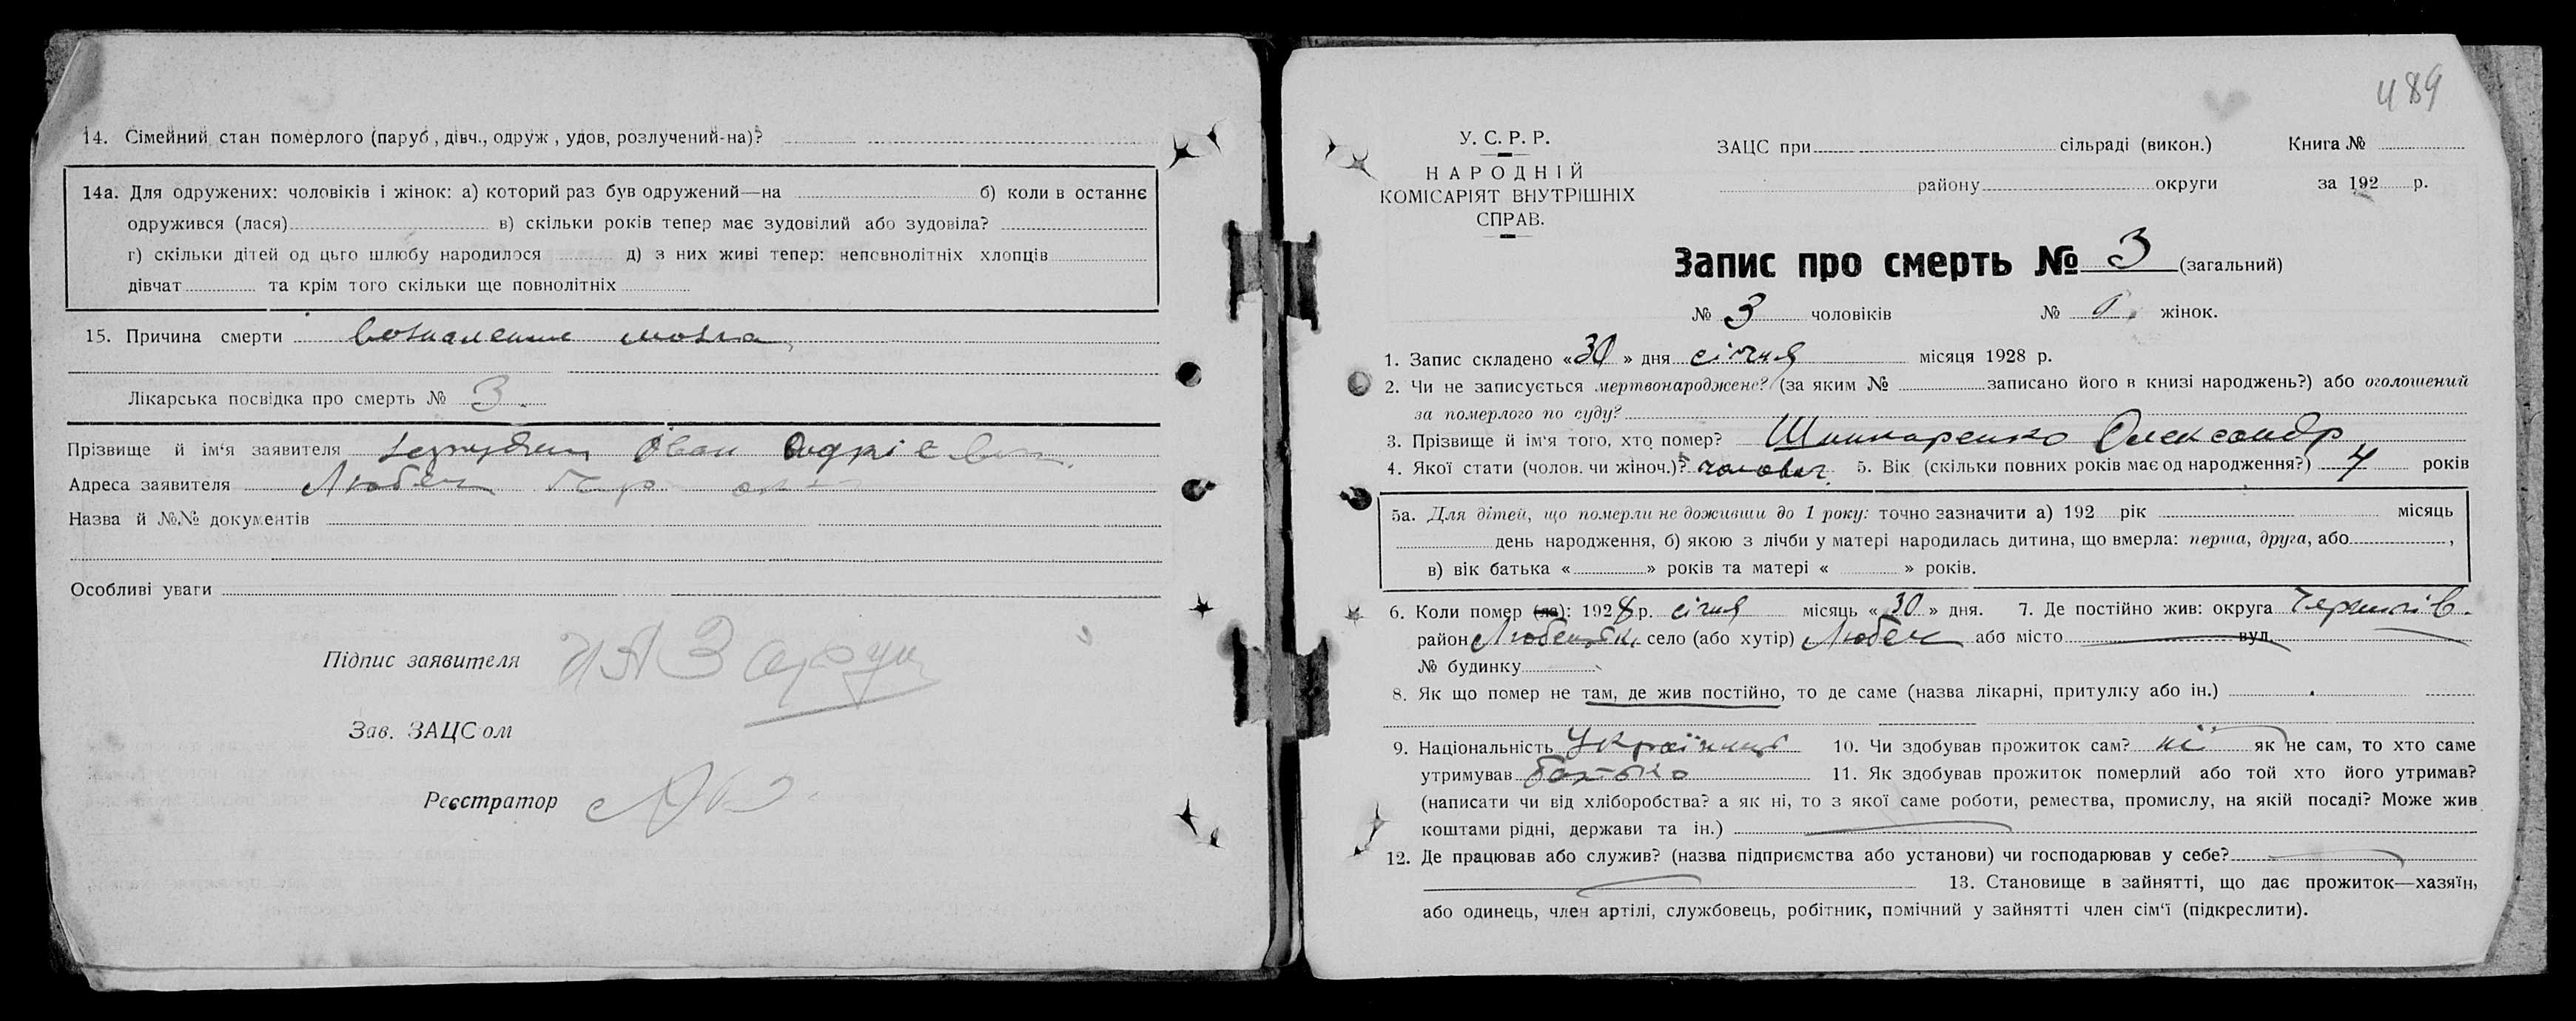 14. Сімейний стан померлого (паруб, дівч., одруж, удов, розлучений-на)?
14а. Для одружених: чоловіків і жінок: а) которий раз був одружений—на б) коли в останнє
одружився (лася) в) скільки років тепер має зудовілий або зудовіла?
г) скільки дітей од цього шлюбу народилося д) з них живі тепер: неповнолітніх хлопців
дівчат та крім того скільки ще повнолітніх
15. Причина смерти воспаление мозга
Лікарська посвідка про смерть № 3
Прізвище й ім'я заявителя Іван Андрієвич
Адреса заявителя Любеч
Назва й №№ документів
Особливі уваги
Підпис заявителя
Зав. ЗАЦСом
Реєстратор
489
У. С. Р. Р.
НАРОДНІЙ
КОМІСАРІЯТ ВНУТРІШНІХ
СПРАВ.
ЗАЦС при сільраді (викон.) Книга №
району округи за 192 р.
Запис про смерть № 3 (загальний)
№ 3 чоловіків № жінок.
1. Запис складено «30» дня січня місяця 1928 р.
2. Чи не записується мертвонароджене? (за яким № записано його в книзі народжень?) або оголошений
за померлого по суду?
3. Прізвище й ім'я того, хто помер? Шинкаренко Олександр
4. Якої стати (чолов. чи жіноч.)? чоловіч. 5. Вік (скільки повних років має од народження?) 4 років
5а. Для дітей, що померли не доживши до 1 року: точно зазначити а) 192 рік місяць
день народження, б) якою з лічби у матері народилась дитина, що вмерла: перша, друга, або ,
в) вік батька « » років та матері « » років.
6. Коли помер (ла): 1928 р. січня місяць «30» дня. 7. Де постійно жив: округа Чернігів.
район Любецьк. село (або хутір) Любеч або місто вул.
№ будинку
8. Як що помер не там, де жив постійно, то де саме (назва лікарні, притулку або ін.)
9. Національність Українець 10. Чи здобував прожиток сам? ні як не сам, то хто саме
утримував батько 11. Як здобував прожиток померлий або той хто його утримав?
(написати чи від хліборобства? а як ні, то з якої саме роботи, ремества, промислу, на якій посаді? Може жив
коштами рідні, держави та ін.)
12. Де працював або служив? (назва підприємства або установи) чи господарював у себе?
13. Становище в зайнятті, що дає прожиток—хазяїн,
або одинець, член артілі, службовець, робітник, помічний у зайнятті член сім'ї (підкреслити).